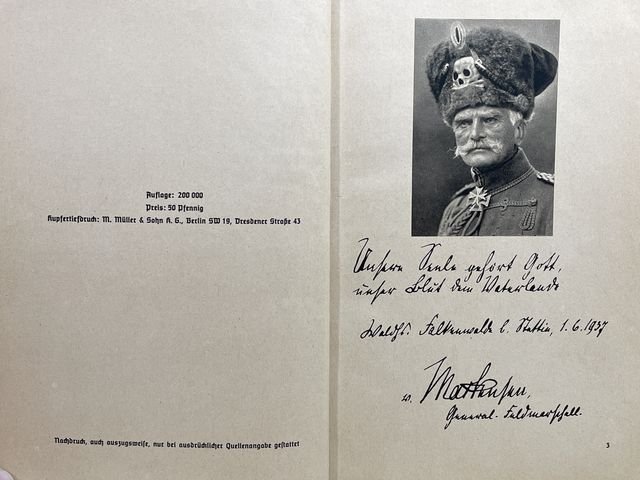 Auflage: 200 000
Preis: 50 Pfennig
Kupfertiefdruck: M. Müller & Sohn A. G., Berlin SW 19, Dresdener Straße 43
Nachdruck, auch auszugsweise, nur bei ausdrücklicher Quellenangabe gestattet
Unsere Seele gehört Gott,
unser Blut dem Vaterlande
Falkenwalde b. Stettin, 1.6.1937
v. Mackensen,
General-Feldmarschall.
3